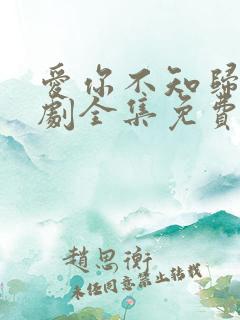 愛你不知歸
劇全集免費
趙思衡
未经同意禁止转载